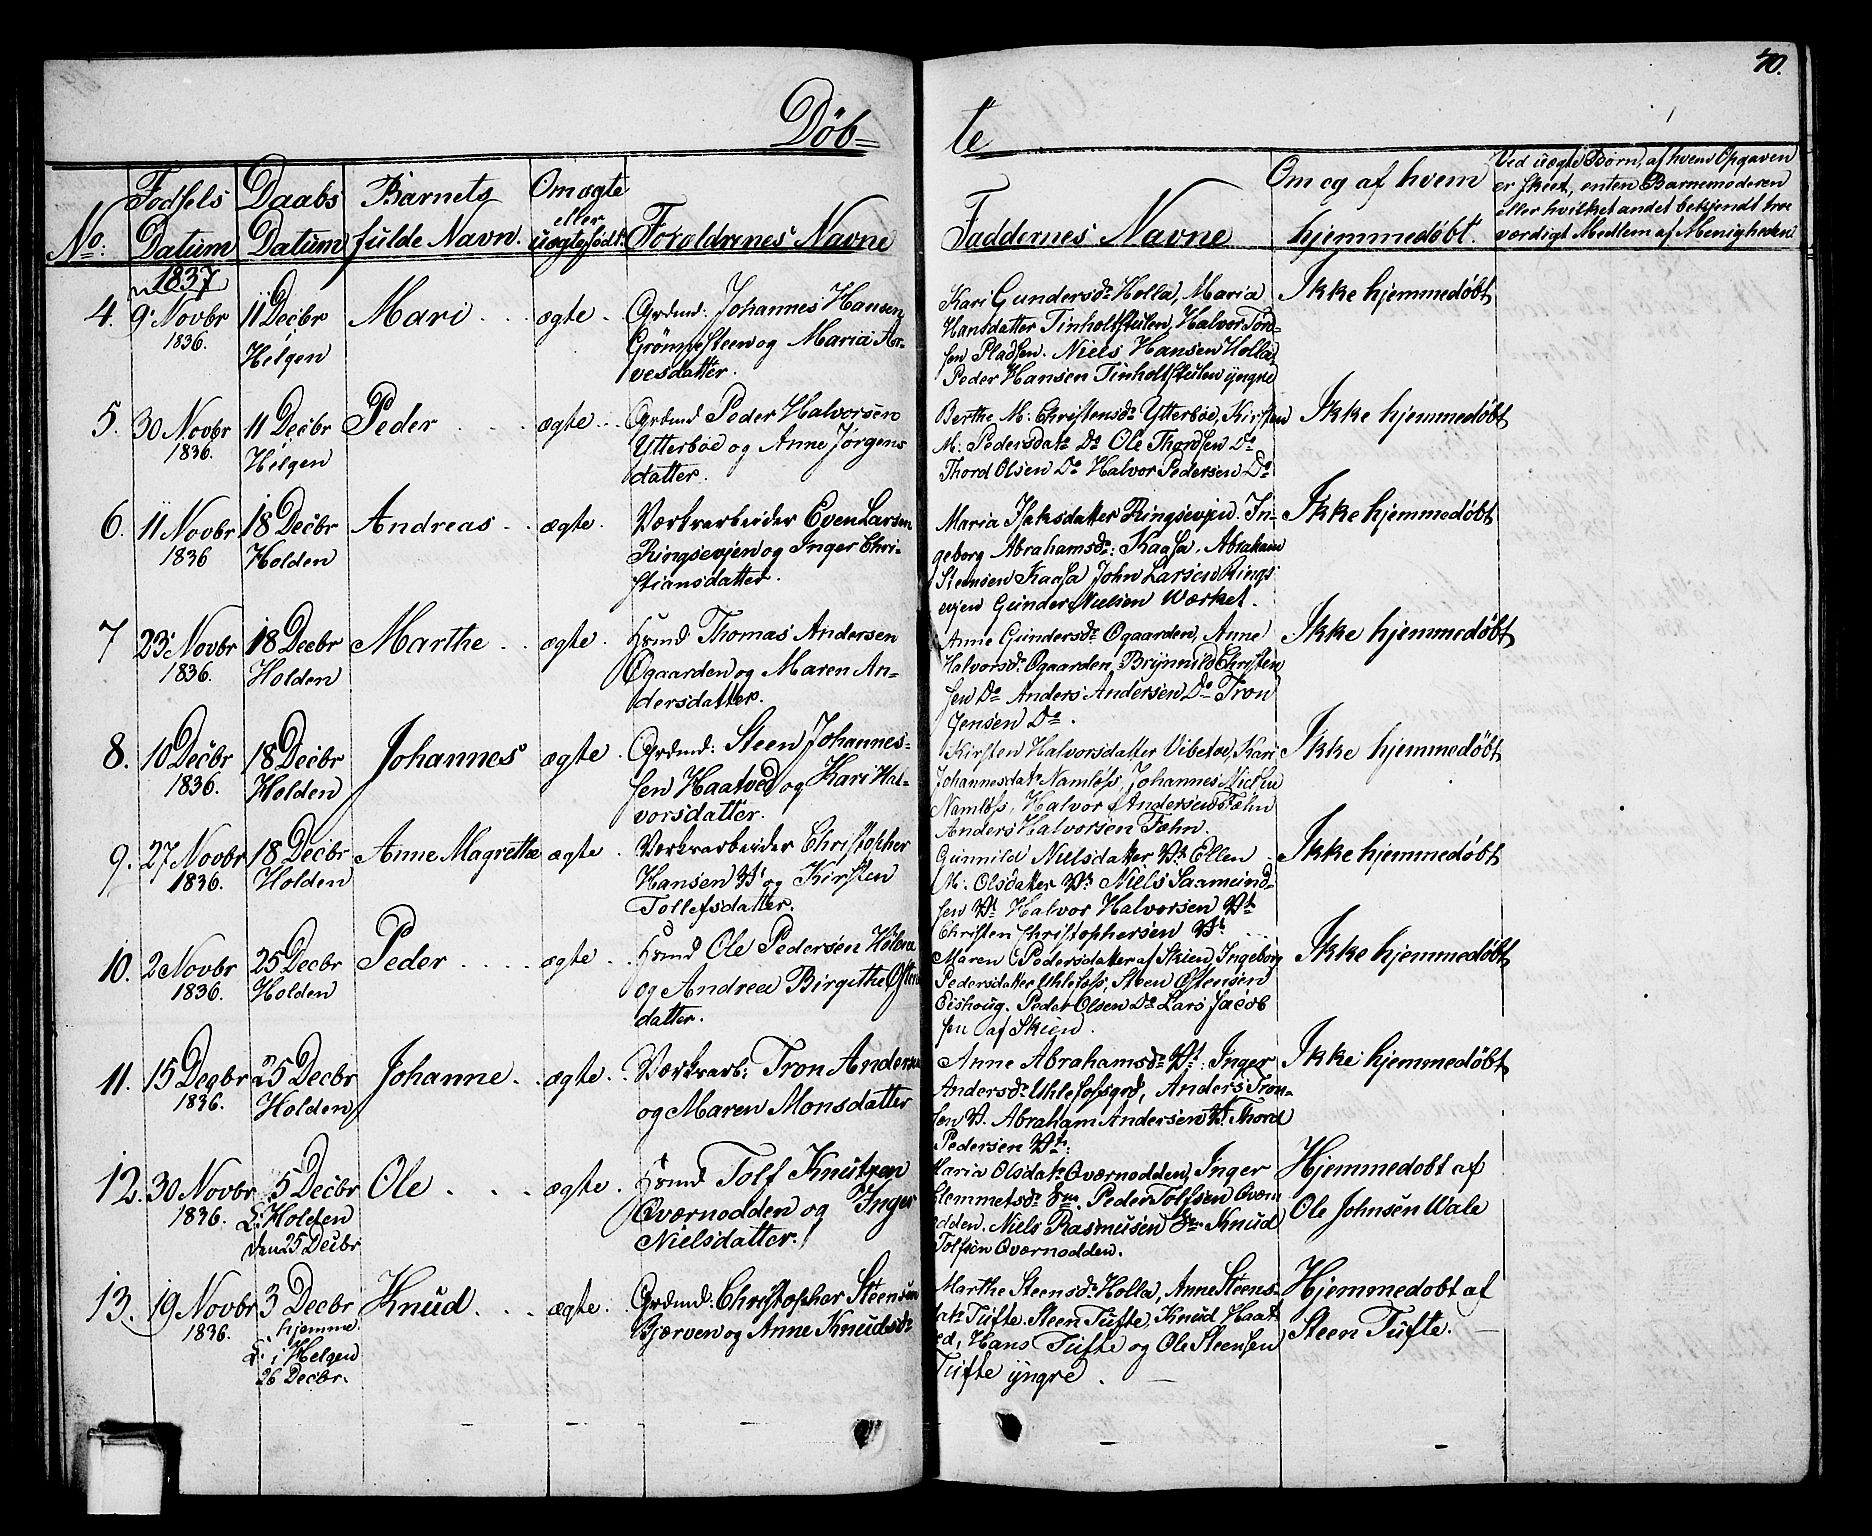 40.
Döb=
te
No.
Fødsels Datum
Daabs Datum
Barnets fulde Navn.
Om ægte eller uægtefødt.
Forældrenes Navne
Faddernes Navne
Om og af hvem hjemmedøbt.
Ved uægte Børn, af hvem Opgaven
er skeet, enten Barnemoderen
eller hvilket andet bekjendt tro
værdigt Medlem af Menigheden
1837
4. 9 Novbr 1836. 11 Decbr Helgen Mari ægte.
Grdmd: Johannes Hansen
Grømstesteen og Maria Ar-
vesdatter.
Kari Gundersdr Holla, Maria
Hansdatter Tinholtstulen, Halvor Tond-
sen Pladsen. Niels Hansen Holla
Peder Hansen Tinholtstulen yngre
Ikke hjemmedøbt
5. 30 Novbr 1836. 11 Decbr Helgen Peder ægte
Grdmd Peder Halvorsen
Ytterböe og Anne Jørgens
datter.
Berthe M: Christensdr Ytterböe, Kirsten
M: Pedersdatr Do Ole Thordsen Do
Thord Olsen Do Halvor Pedersen Do
Ikke hjemmedøbt
6. 11 Novbr 1836 18 Decbr Holden Andreas ægte.
Værkrarbeider Even Larsen
Ringsevjen og Inger Chri-
stiansdatter.
Maria Isaksdatter Ringsevjen. In-
geborg Abrahamsdr: Kaasa. Abraham
Stensen Kaasa John Larsen Rings
evjen Gunder Nielsen Wærket.
Ikke hjemmedøbt
7 23 Novbr 1836. 18 Decbr Holden Marthe ægte.
Hsmd Thomas Andersen
Ogaarden og Maren An-
dersdatter.
Anne Gundersdr Ogaarden, Anne
Halvorsdr Ogaarden, Brynnild Christen
sen Do Anders Andersen Do Tron
Jensen Do.
Ikke hjemmedøbt
8. 10 Decbr 1836. 18 Decbr Holden Johannes ægte
Grdmd: Steen Johannes-
sen Haatved og Kari Hal-
vorsdatter.
Kirsten Halvorsdatter Vibetoe, Kari
Johannesdatr Namløss, Johannes
Namløss, Halvor Andersen Fæhn
Anders Halvorsen Fæhn.
Ikke hjemmedøbt
9. 27 Novbr 1836. 18 Decbr Holden Anne Magrethe ægte
Værkrarbeider Christopher
Hansen Vt og Kirsten
Tollefsdatter.
Gunnild Nielsdatter Vt Ellen
M: Olsdatter Vt Niels Saamund-
sen Vt Halvor Halvorsen Vt
Christen Christophersen Vt.
Ikke hjemmedøbt
10. 2 Novbr 1836. 25 Decbr Holden Peder ægte
Hsmd Ole Pedersen
og Andrea Birgithe Østen
datter.
Maren Pedersdatter af Skien, Ingeborg
Pedersdatter Uhlefoss, Steen Østensen
Eishoug. Peder Olsen Do Lars Jacob
sen af Skien.
Ikke hjemmedøbt
11. 15 Decbr 1836. 25 Decbr Holden Johanne ægte.
Værkrarb: Tron Andersen
og Maren Monsdatter
Anne Abrahamsdr Vt. Inger
Andersdr Uhlefossgrd, Anders Tron-
sen Vt. Abraham Andersen Vt Thord
Pedersen Vt.
Ikke hjemmedøbt
12. 30 Novbr 1836. 5 Decbr Holden den 25 Decbr Ole ægte.
Hsmd Tolf Knutzen
Oværnodden og Inger
Nielsdatter.
Maria Olsdatr Oværnodden, Inger
Clemmetsdr Peder Tolfsen Oværn
odden. Niels Rasmusen Knud
Tolfsen Oværnodden.
Hjemmedøbt af
Ole Johnsen Wale
13. 19 Novbr 1836. 3 Decbr hjemme i Helgen 26 Decbr. Knud ægte.
Grdmd: Christopher Steensen
Gjærven og Anne Knudsdr
Marthe Steensdr Holla, Anne Steens
datr Tufte. Steen Tufte, Knud Haat
ved, Hans Tufte og Ole Steensen
Tufte yngre.
Hjemmedøbt af
Steen Tufte.